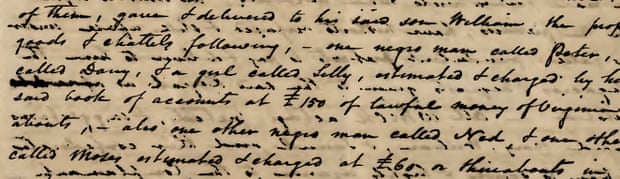 of them, gave & delivered to his said son William the prop
goods & chattels following, – one negro man called Peter,
called Davy, & a girl called Lilly, estimated & charged by h
said book of accounts at £150 of lawful money of Virginia
abouts, – also one other negro man called Ned, & one othe
called Moses estimated & charged at £60 or thereabouts in